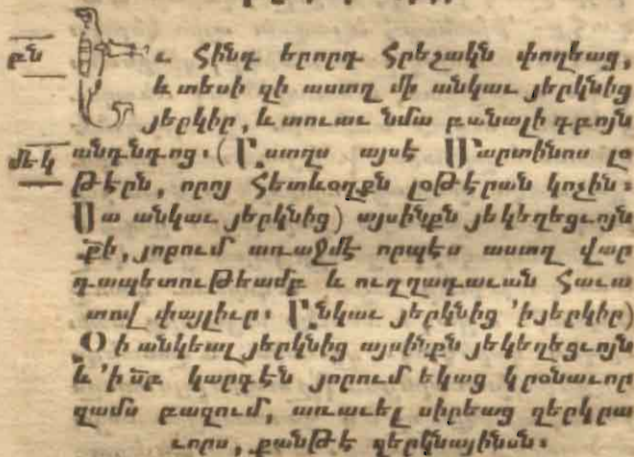 բն
Եւ Հինգ երորդ Հրեշակն փողեաց,
և տեսի զի աստղ մի անկաւ յերկնից
յերկիր, և տուաւ նմա բանալի գբոյն
մեկ անդնդոց։ (Աստղս այսէ Մարտինոս լօ
թէրն, որոյ Հետևօղքն լօթէրան կոչին։
Սա անկաւ յերկնից) այսինքն յեկեղեցւոյն
քի, յորում առաջմէ որպէս աստղ վար
դապետութեամբ և ուղղադաւան Հաւա
տով փայլիւր։ Անկաւ յերկնից 'ի յերկիր)
Օի անկեալ յերկնից այսինքն յեկեղեցւոյն
և 'ի սբ կարգէն յորում եկաց կրօնաւոր
զամս բազում, առաւել սիրեաց զերկրա
ւորս, քանթէ զերկնայինսն։